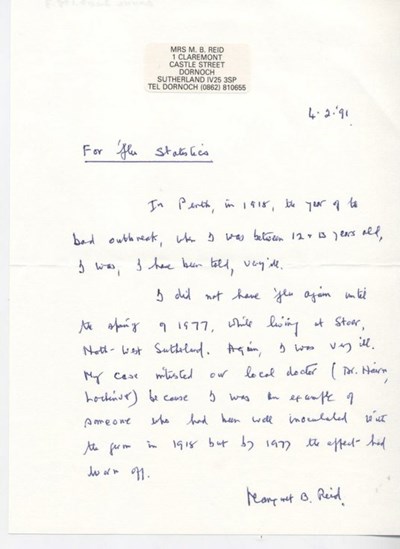 MRS M. B. REID
1 CLAREMONT
CASTLE STREET
DORNOCH
SUTHERLAND IV25 3SP
TEL DORNOCH (0862) 810655
4.2.'91
For 'flu Statistics
In Perth, in 1918, the year of the
bad outbreak, when I was between 12 & 13 years old,
I was, I have been told, very ill.
I did not have 'flu again until
the spring of 1977, while living at Stoer,
North-West Sutherland. Again, I was very ill.
My case interested our local doctor (Dr.
Lochinver) because I was an example of
someone who had been well inoculated with
the germ in 1918 but by 1977 the effect had
worn off.
Margaret B. Reid.